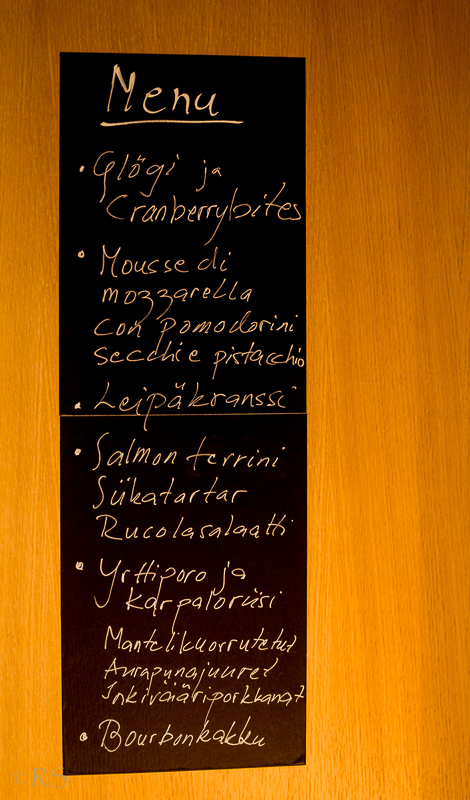 Menu
• Glögi ja
Cranberrybites
• Mousse di
mozzarella
con pomodorini
secchi e pistacchio
• Leipäkranssi
• Salmon terrini
Siikatartar
Rucolasalaatti
• Yrttiporo ja
karpaloriisi
Mantelikuorrutetut
Aurapunajuuret
Inkivääriporkkanat
• Bourbonkakku